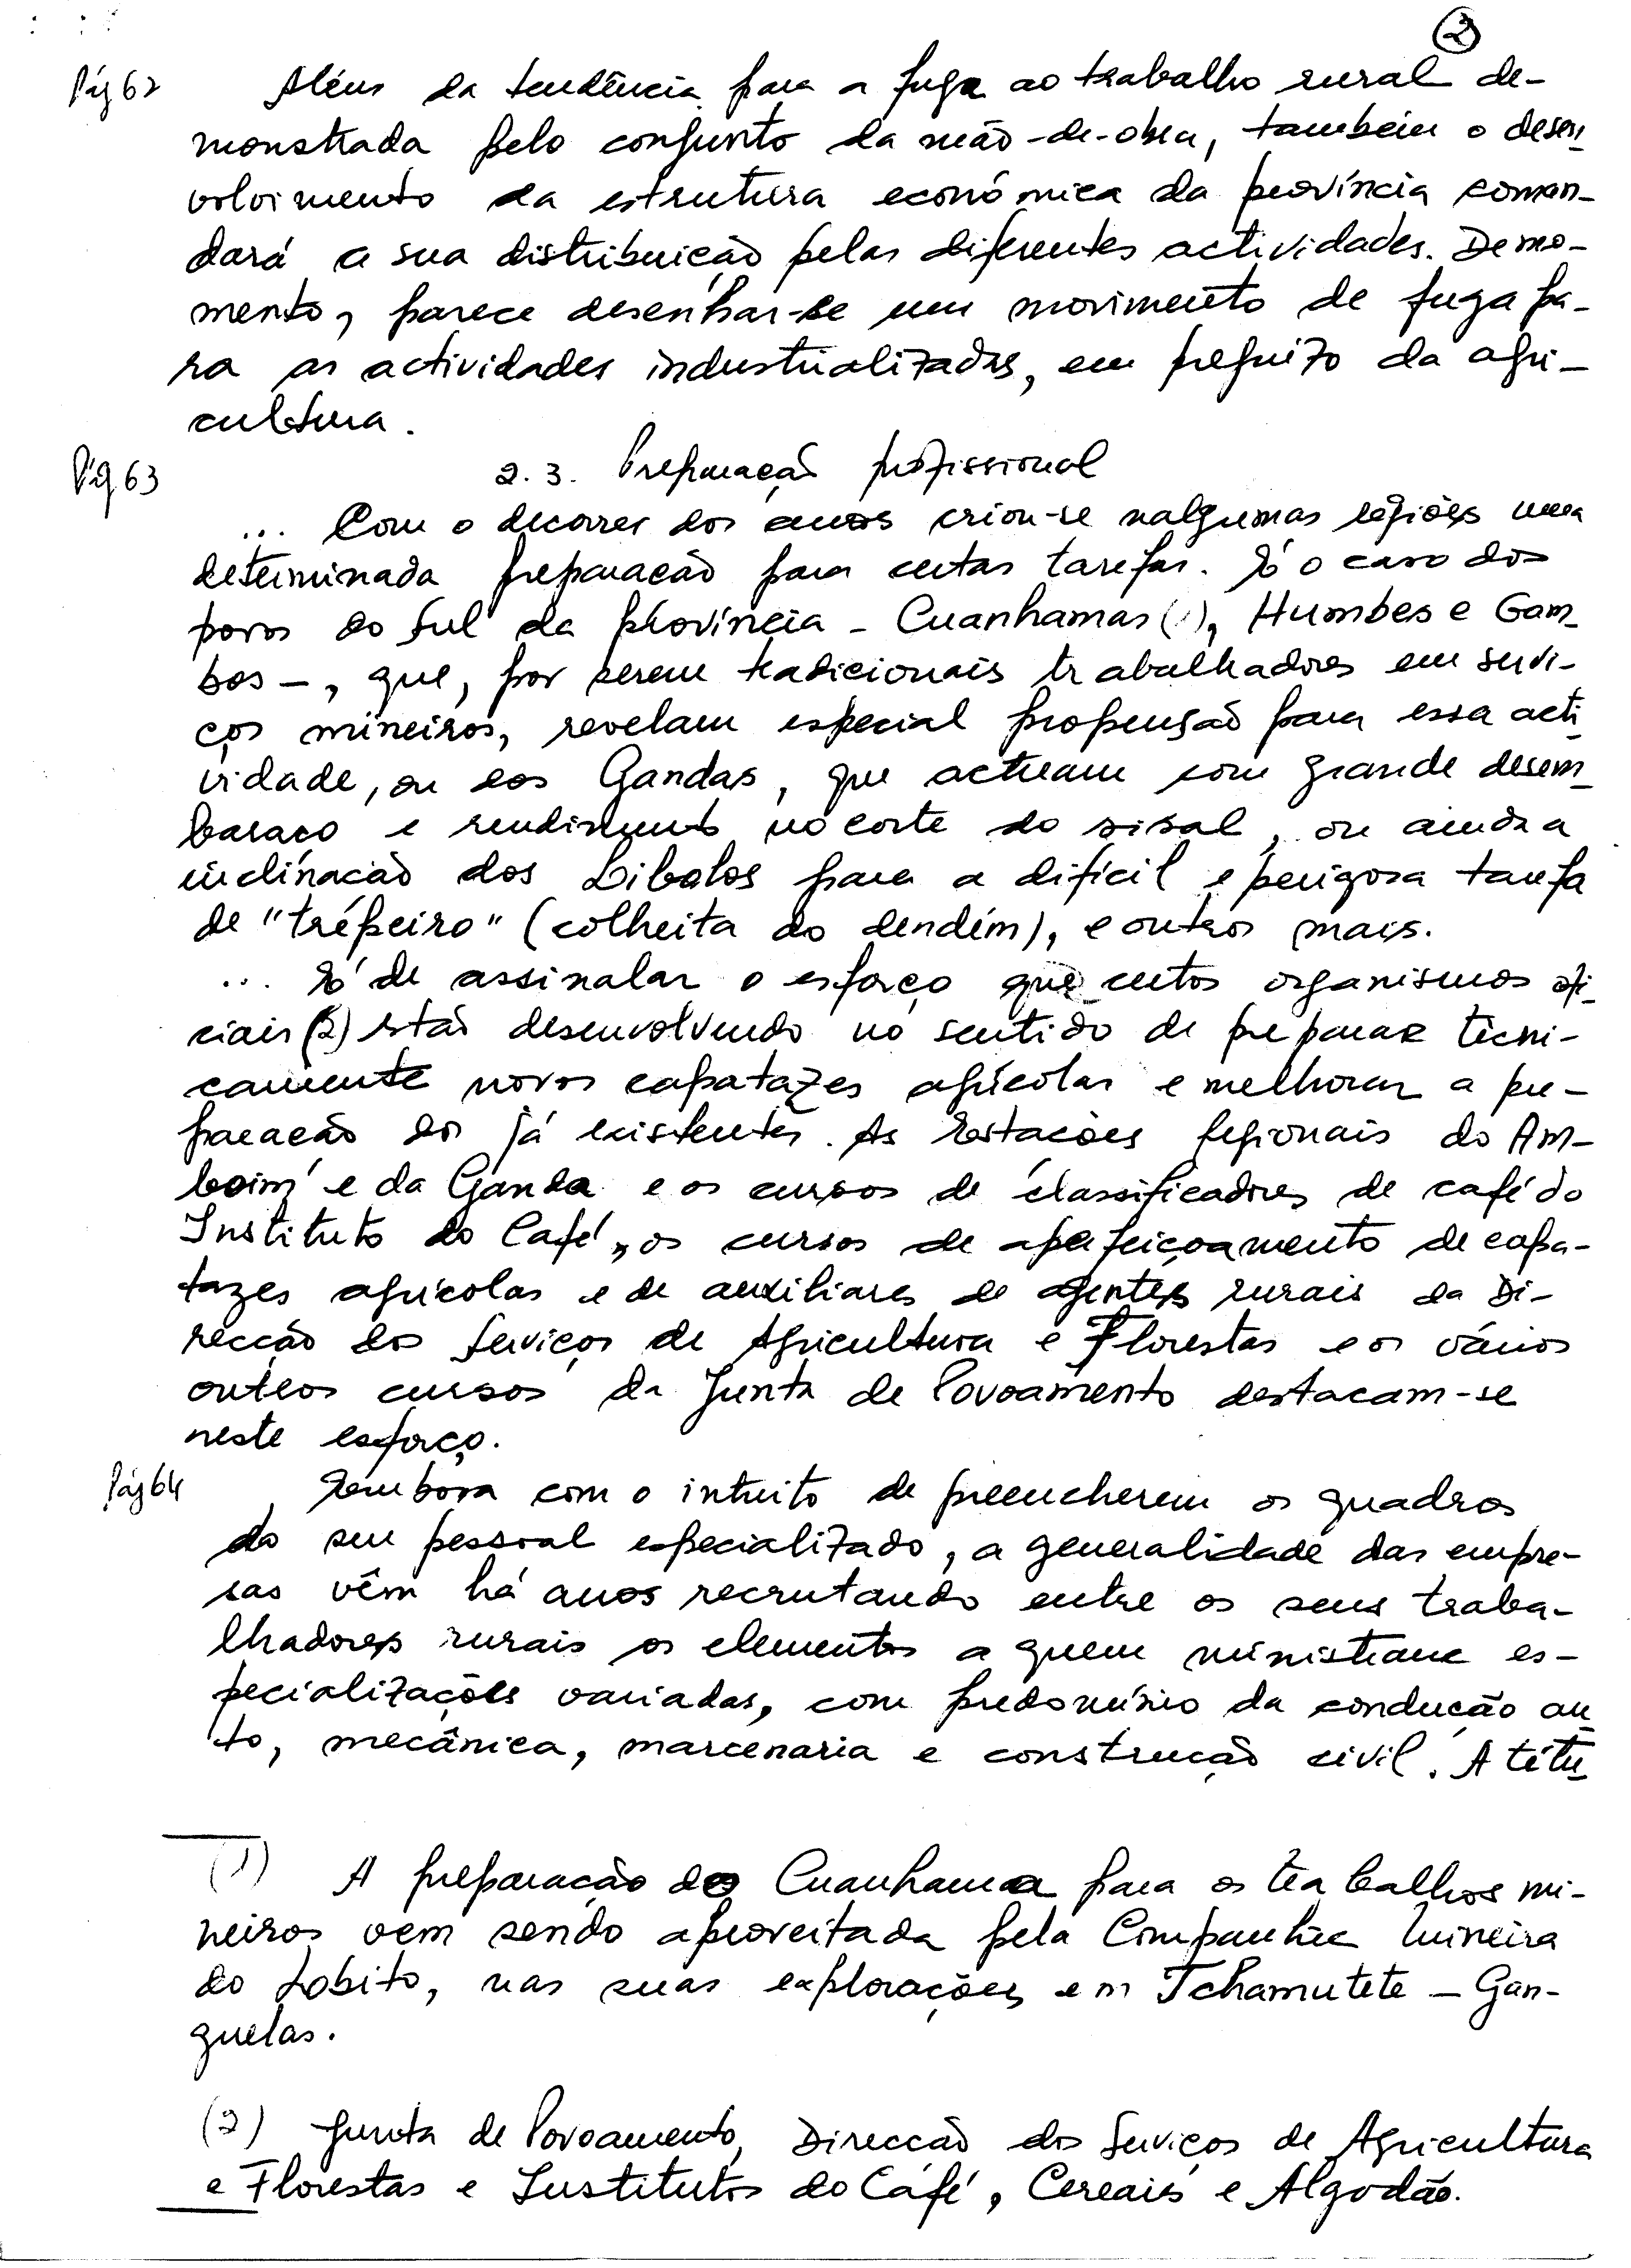 2
Pág 62 Além da tendência para a fuga ao trabalho rural de-
monstrada pelo conjunto da mão-de-obra, também o desen-
volvimento da estrutura económica da província coman-
dará a sua distribuição pelas diferentes actividades. De mo-
mento, parece desenhar-se um movimento de fuga pa-
ra as actividades industrializadas, em prejuízo da agri-
cultura.
Pág. 63 2. 3. Preparação profissional
... Com o decorrer dos anos criou-se nalgumas regiões uma
determinada preparação para certas tarefas. É o caso dos
povos do Sul da província - Cuanhamas (1), Humbes e Gam-
bos -, que, por serem tradicionais trabalhadores em servi-
ços mineiros, revelam especial propensão para essa acti-
vidade, ou dos Gandas, que actuam com grande desem-
baraço e rendimento no corte do sisal, ou ainda a
inclinação dos Libolos para a difícil e perigosa tarefa
de "trépeiro" (colheita do dendém), e outros mais.
... É de assinalar o esforço que certos organismos ofi-
ciais (2) estão desenvolvendo no sentido de preparar tècni-
camente novos capatazes agrícolas e melhorar a pre-
paração dos já existentes. As Estações Regionais do Am-
boim e da Ganda e os cursos de classificadores de café do
Instituto do Café, os cursos de aperfeiçoamento de capa-
tazes agrícolas e de auxiliares de agentes rurais da Di-
recção dos Serviços de Agricultura e Florestas e os vários
outros cursos da Junta de Povoamento destacam-se
neste esforço.
Pág 64 Embora com o intuito de preencherem os quadros
do seu pessoal especializado, a generalidade das empre-
sas vêm há anos recrutando entre os seus traba-
lhadores rurais os elementos a quem ministram es-
pecializações variadas, com predomínio da condução au-
to, mecânica, marcenaria e construção civil. A títu-
(1) A preparação do Cuanhama para os trabalhos mi-
neiros vem sendo aproveitada pela Companhia Mineira
do Lobito, nas suas explorações em Tchamutete - Gan-
guelas.
(2) Junta de Povoamento, Direcção dos Serviços de Agricultura
e Florestas e Institutos do Café, Cereais e Algodão.